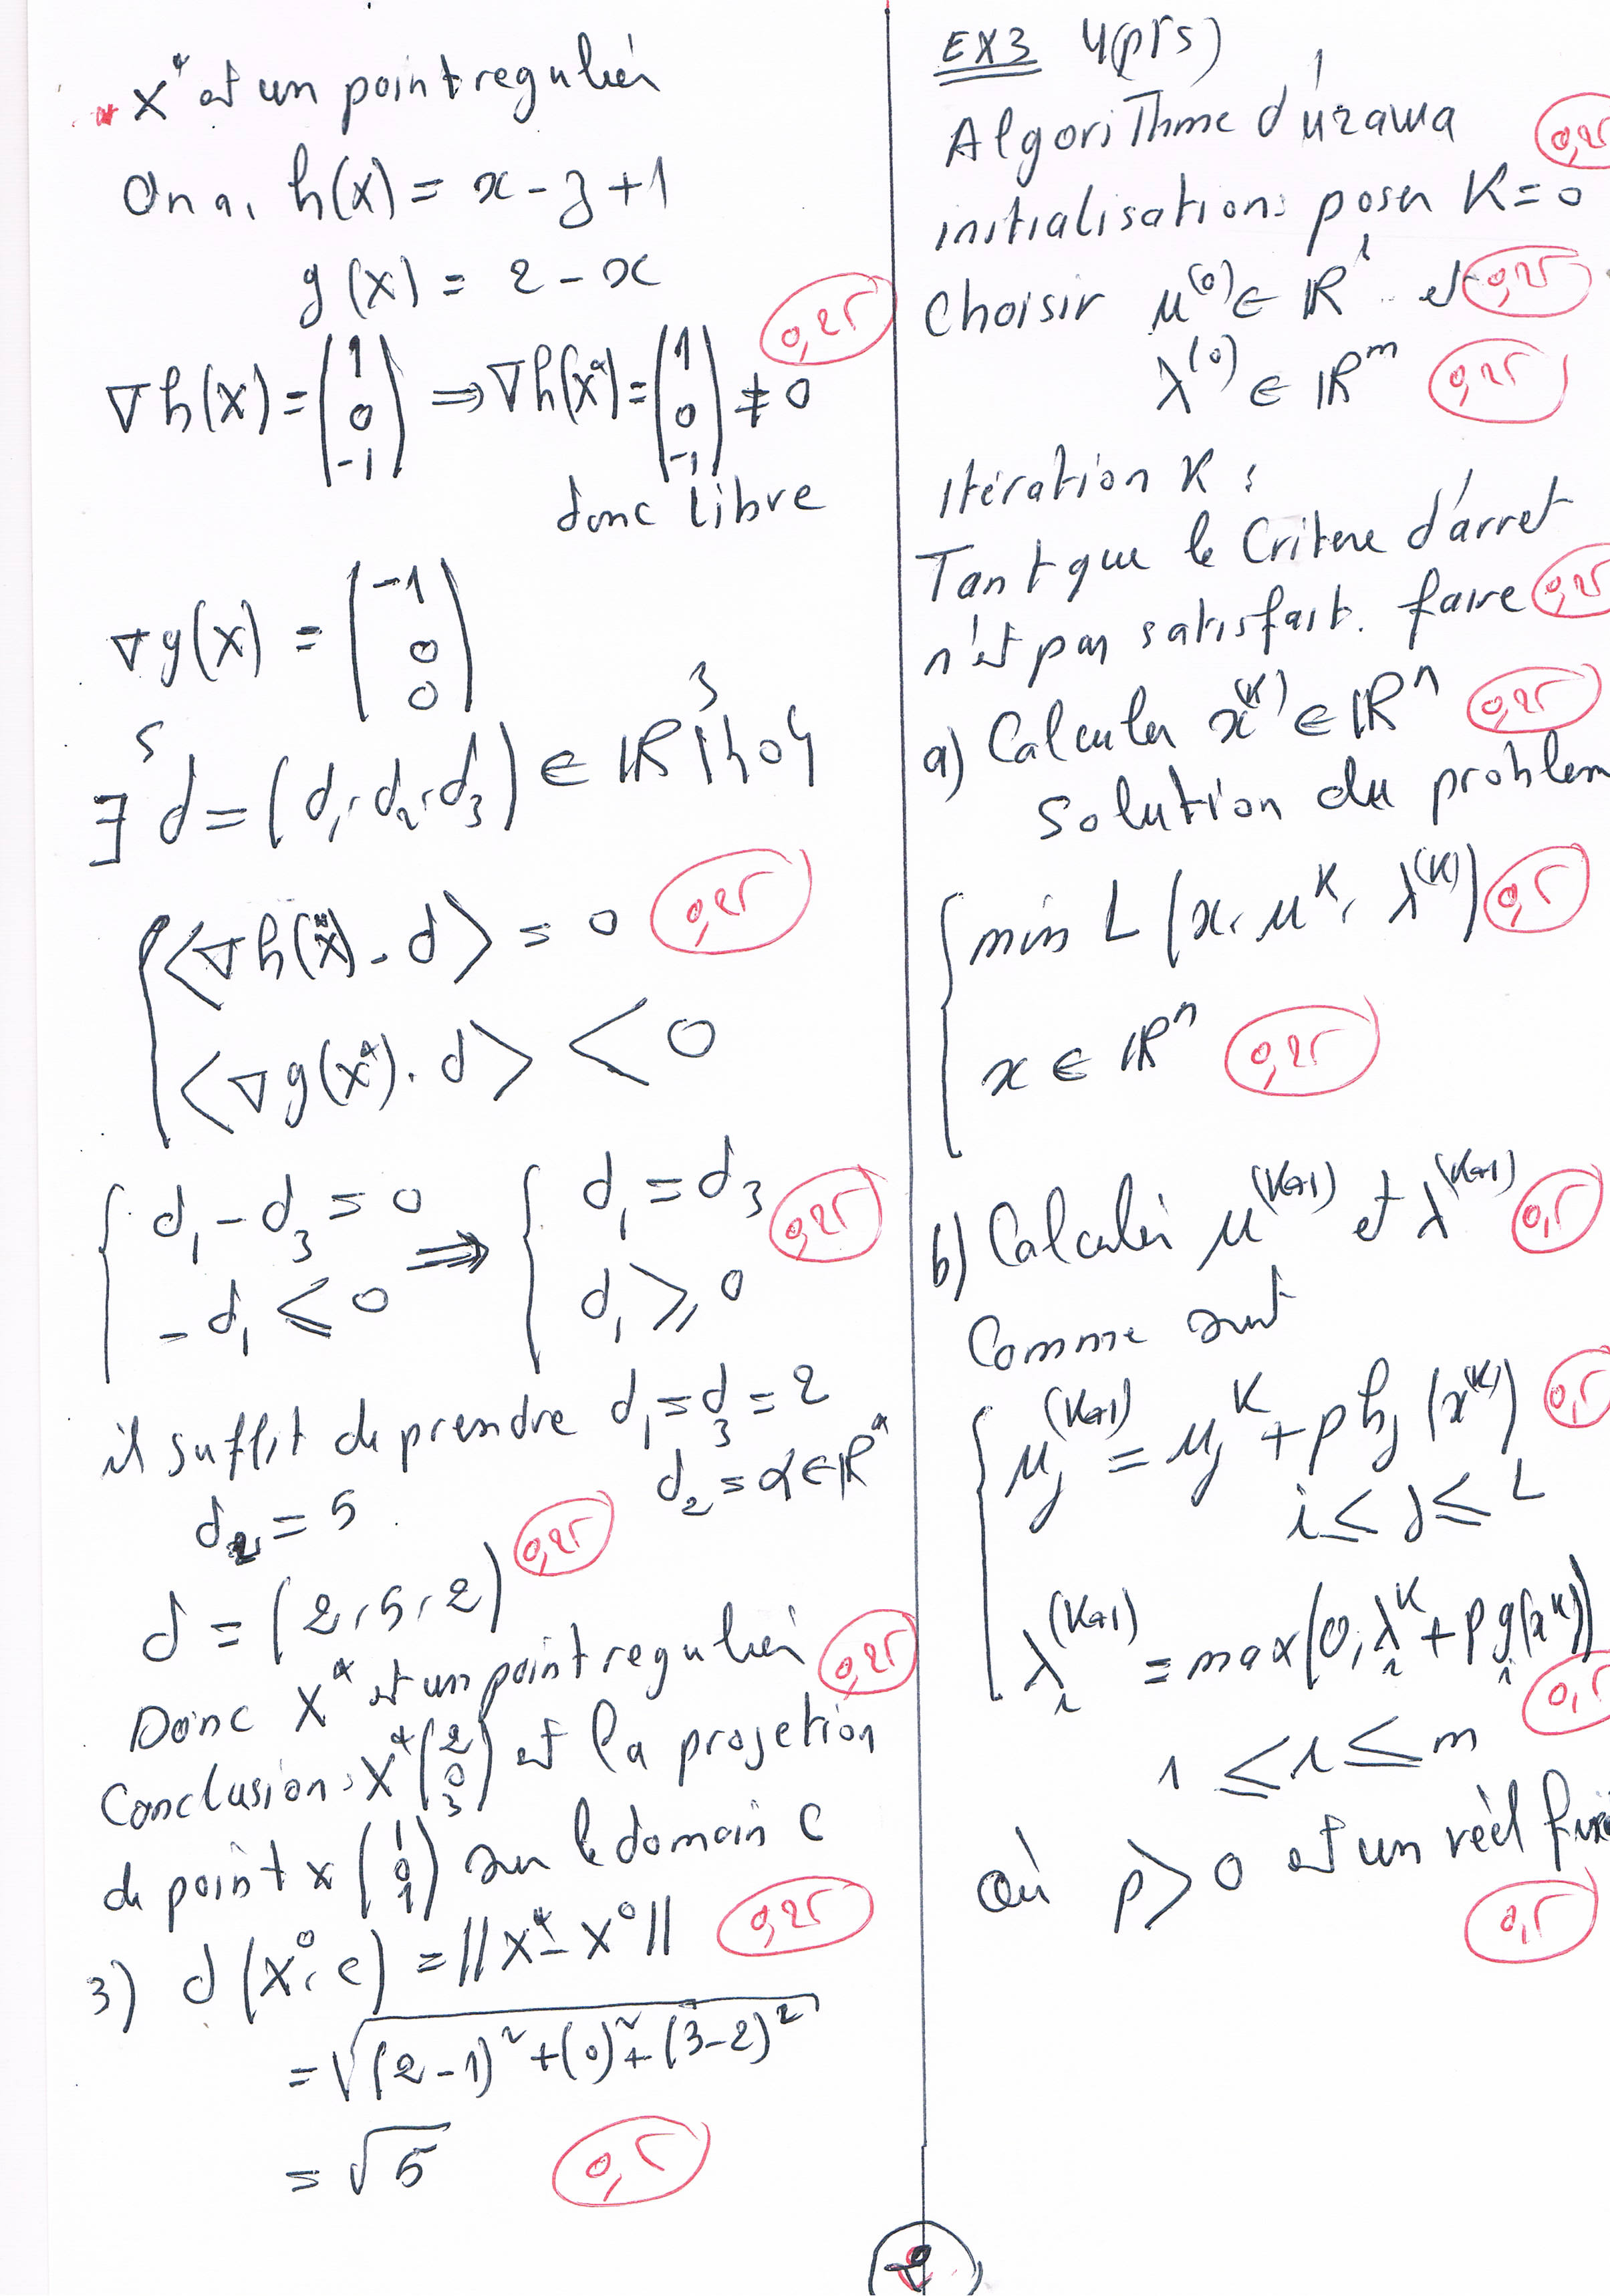 X* est un point regulier
On a, h(X) = x - z + 1
g(X) = 2 - x
∇h(X) = (1 0 -1) ⇒ ∇h(X*) = (1 0 -1) ≠ 0
0,25
donc libre
∇g(X) = (-1 0 0)
∃ d = (d₁, d₂, d₃) ∈ ℝ³ \ {0}
⟨∇h(X*). d⟩ = 0 0,25
⟨∇g(X*). d⟩ < 0
{ d₁ - d₃ = 0 ⇒ { d₁ = d₃ 0,25
- d₁ ≤ 0 d₁ ≥ 0
il suffit de prendre d₁ = d₃ = 2
d₂ = α ∈ ℝ*
d₂ = 5
d = (2, 5, 2) 0,25
Donc X* est un point regulier 0,25
Conclusion: X* (2 0 3) est la projetion
de point x (1 0 1) sur le domain C
3) d(X⁰, C) = ||X* - X⁰|| 0,25
= √((2-1)² + (0)² + (3-2)²)
= √5 0,5
EX3 4(pts)
Algorithme d'uzawa 0,25
initialisation: poser K=0
Choisir μ⁽⁰⁾ ∈ ℝˡ et 0,25
λ⁽⁰⁾ ∈ ℝᵐ 0,25
Itération K :
Tant que le Critere d'arret
n'est pas satisfait. faire 0,25
a) Calculer x⁽ᴷ⁾ ∈ ℝⁿ 0,25
Solution du problem
{ min L (x, μᴷ, λ⁽ᴷ⁾) 0,5
x ∈ ℝⁿ 0,25
b) Calculer μ⁽ᴷ⁺¹⁾ et λ⁽ᴷ⁺¹⁾ 0,5
Comme suit
μⱼ⁽ᴷ⁺¹⁾ = μⱼᴷ + ρ hⱼ (x⁽ᴷ⁾) 0,5
i ≤ j ≤ L
λᵢ⁽ᴷ⁺¹⁾ = max(0, λᵢᴷ + ρ gᵢ(xᴷ))
0,5
1 ≤ i ≤ m
où ρ > 0 est un réel fixé
0,5
2